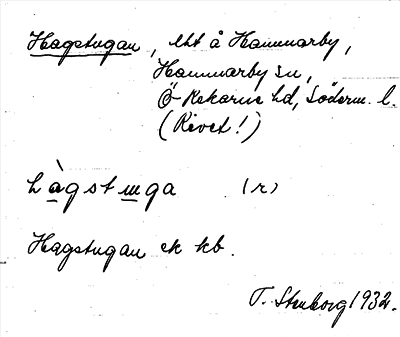 Hagstugan, lht å Hammarby,
Hammarby sn,
Ö. Rekarne hd, Söderm. l.
(Rivet!)
hàgstuga (r)
Hagstugan ek kb.
T. Stenborg 1932.